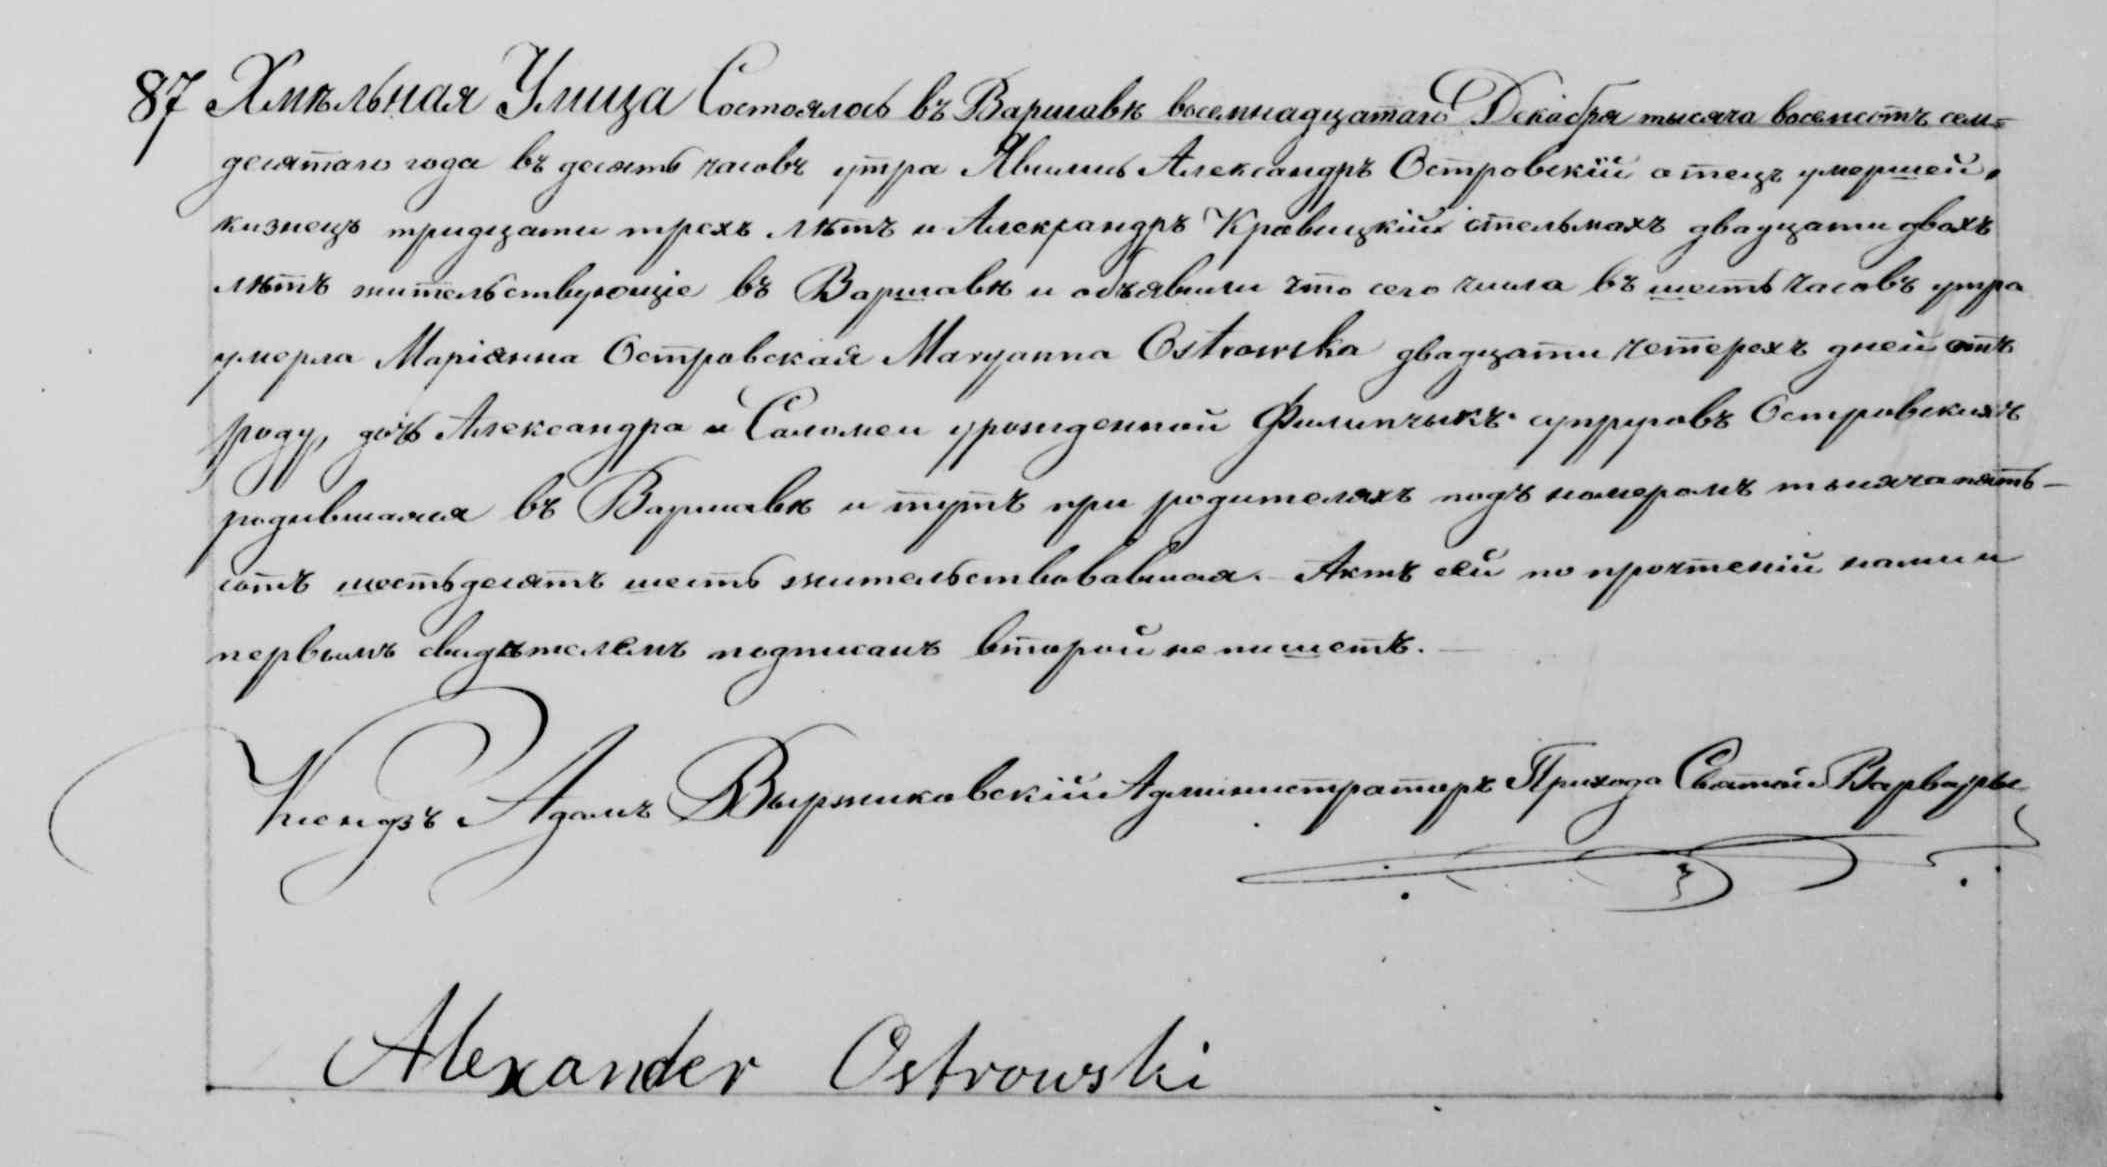 87 Хмѣльная Улица Состоялось въ Варшавѣ восемнадцатаго Декабря тысяча восемсотъ сем=
десятаго года въ десять часовъ утра Явились Александръ Островскій отецъ умершей,
кизнецъ тридцати трехъ лѣтъ и Александръ Кравицкій стельмахъ двадцати двохъ
лѣтъ жительствующіе въ Варшавѣ и объявили что сего числа въ шесть часовъ утра
умерла Маріянна Островская Maryanna Ostrowska двадцати четерехъ дней отъ
роду, дочь Александра и Саломеи урожденной Филипчыкъ супруговъ Островскихъ
родившаяся въ Варшавѣ и тутъ при родителяхъ подъ номеромъ тысяча пять-
сотъ шестьдесятъ шесть жительствовавшая. Актъ сей по прочтеніи нами и
первымъ свидѣтелемъ подписанъ второй не пишетъ. —
Ксендзъ Адамъ Выржиковскій Администраторъ Прихода Святой Варвары
Alexander Ostrowski